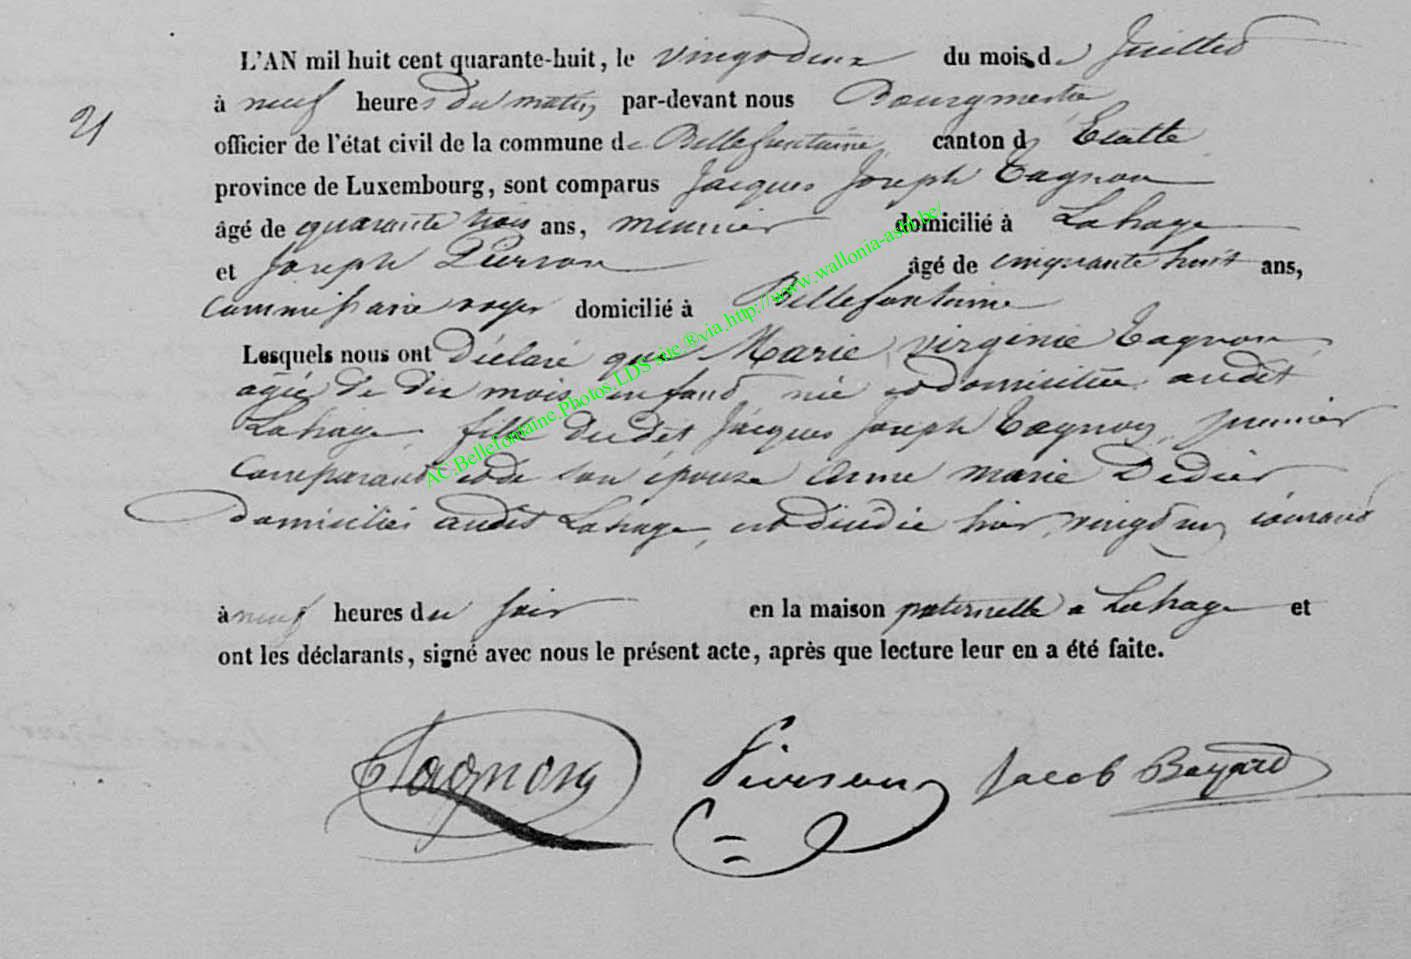 21
L'AN mil huit cent quarante-huit, le vingt deux du mois de Juillet
à neuf heures du matin par-devant nous Bourgmestre
officier de l'état civil de la commune de Bellefontaine, canton d' Etalle
province de Luxembourg, sont comparus Jacques Joseph Tagnon
âgé de quarante trois ans, meunier domicilié à Lahage
et Joseph Pierson âgé de cinquante huit ans,
commissaire voyer domicilié à Bellefontaine
Lesquels nous ont déclaré que Marie Virginie Tagnon,
agée de dix mois enfant née et domiciliée audit
Lahage, fille dudit Jacques Joseph Tagnon, premier
comparant et de son épouse Anne Marie Didier
domiciliés audit Lahage, est décédée hier vingt un courant
à neuf heures du soir en la maison paternelle à Lahage et
ont les déclarants, signé avec nous le présent acte, après que lecture leur en a été faite.
Tagnon Pierson Jacob Bayard
AC.Bellefontaine.Photos.LDS site ®via http://www.wallonia-asbl.be/